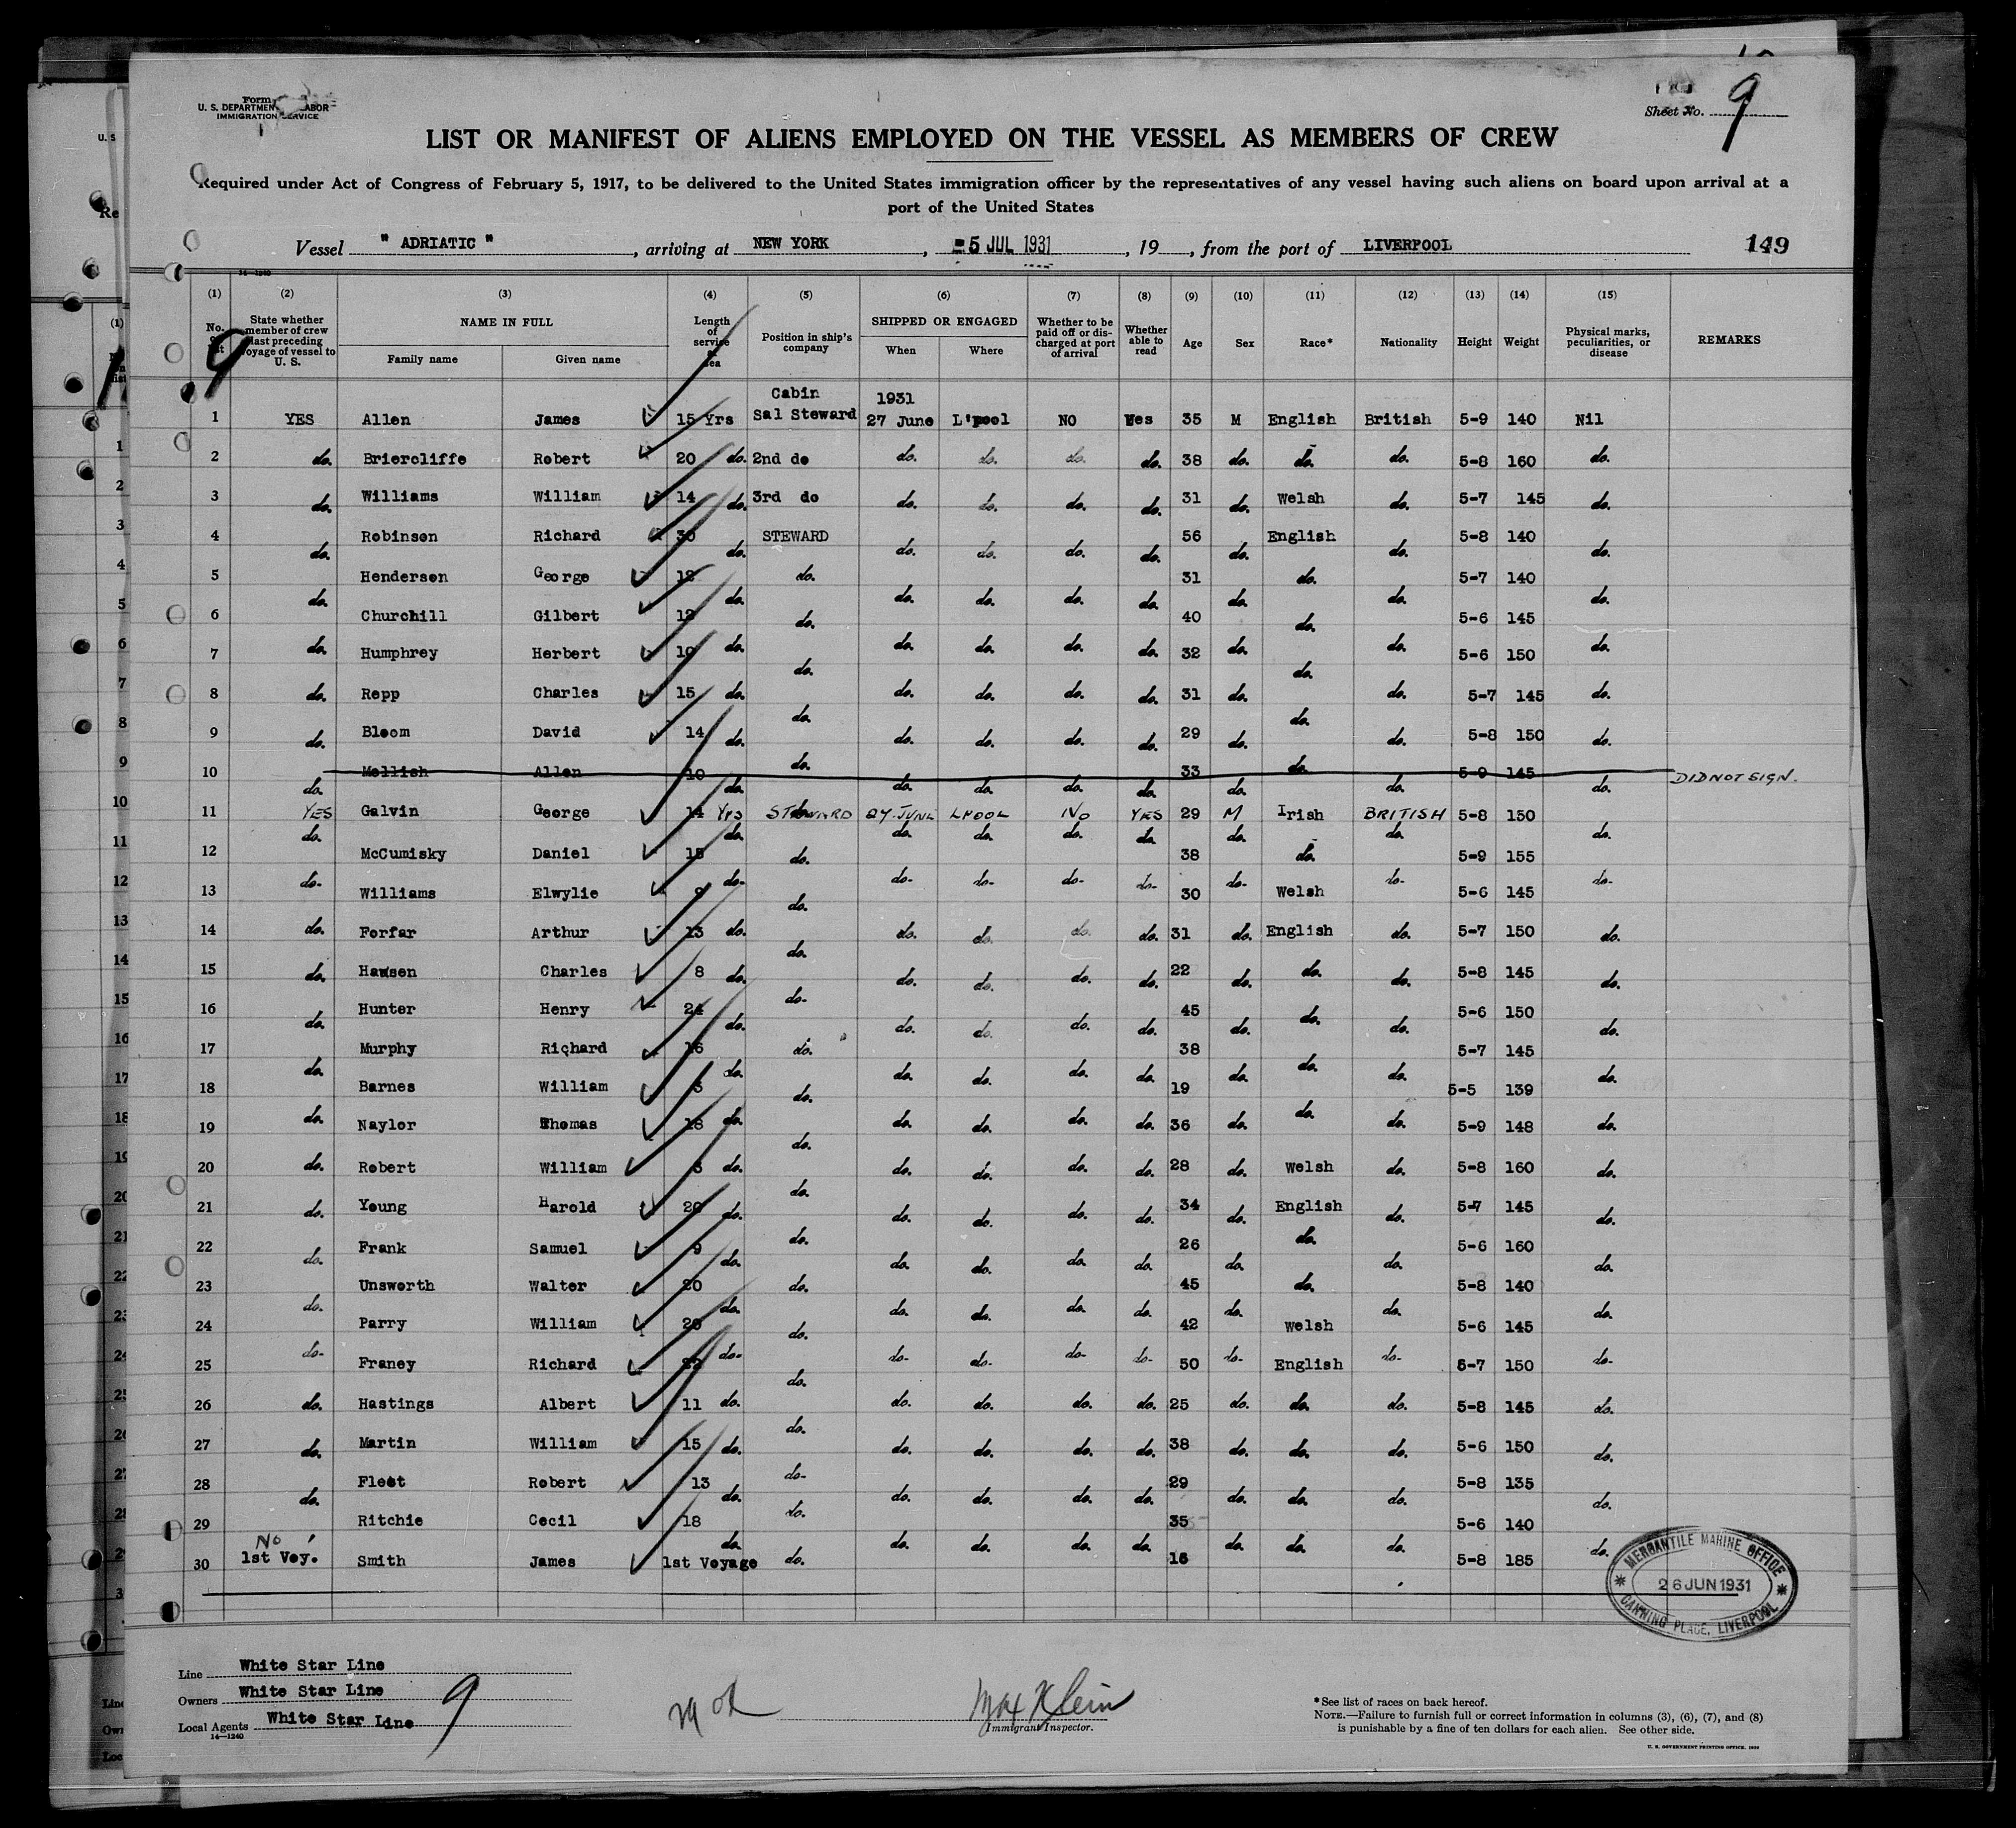 Form
U. S. DEPARTMENT LABOR
IMMIGRATION SERVICE
Sheet No. 9
LIST OR MANIFEST OF ALIENS EMPLOYED ON THE VESSEL AS MEMBERS OF CREW
Required under Act of Congress of February 5, 1917, to be delivered to the United States immigration officer by the representatives of any vessel having such aliens on board upon arrival at a
port of the United States
Vessel " ADRIATIC ", arriving at NEW YORK, 5 JUL 1931, 19, from the port of LIVERPOOL 149
14-1240
(1) (2) (3) (4) (5) (6) (7) (8) (9) (10) (11) (12) (13) (14) (15)
No. 9 State whether member of crew last preceding voyage of vessel to U. S. NAME IN FULL Family name Given name Length of service at sea Position in ship's company SHIPPED OR ENGAGED When Where Whether to be paid off or discharged at port of arrival Whether able to read Age Sex Race* Nationality Height Weight Physical marks, peculiarities, or disease REMARKS
Cabin 1931
1 YES Allen James 15 Yrs Sal Steward 27 June L'pool NO Yes 35 M English British 5-9 140 Nil
2 do. Briercliffe Robert 20 do. 2nd do do. do. do. do. 38 do. do. do. 5-8 160 do.
3 do. Williams William 14 do. 3rd do do. do. do. do. 31 do. Welsh do. 5-7 145 do.
4 do. Robinson Richard 30 do. STEWARD do. do. do. do. 56 do. English do. 5-8 140 do.
5 do. Henderson George 12 do. do. do. do. do. do. 31 do. do. do. 5-7 140 do.
6 do. Churchill Gilbert 12 do. do. do. do. do. do. 40 do. do. do. 5-6 145 do.
7 do. Humphrey Herbert 10 do. do. do. do. do. do. 32 do. do. do. 5-6 150 do.
8 do. Repp Charles 15 do. do. do. do. do. do. 31 do. do. do. 5-7 145 do.
9 do. Bloom David 14 do. do. do. do. do. do. 29 do. do. do. 5-8 150 do.
10 do. Mellish Allen 10 do. do. do. do. do. do. 33 do. do. do. 5-9 145 do. DID NOT SIGN.
11 YES Galvin George 14 Yrs STEWARD 27 JUNE LPOOL No YES 29 M Irish BRITISH 5-8 150
12 do. McCumisky Daniel 15 do. do. do. do. do. do. 38 do. do. do. 5-9 155 do.
13 do- Williams Elwylie 9 do- do. do- do- do- do- 30 do- Welsh do- 5-6 145 do-
14 do. Forfar Arthur 13 do. do. do. do. do. do. 31 do. English do. 5-7 150 do.
15 do. Hansen Charles 8 do. do- do. do. do. do. 22 do. do. do. 5-8 145 do.
16 do. Hunter Henry 24 do. do. do. do. do. do. 45 do. do. do. 5-6 150 do.
17 do. Murphy Richard 16 do. do. do. do. do. do. 38 do. do. do. 5-7 145 do.
18 do. Barnes William 3 do. do. do. do. do. do. 19 do. do. do. 5-5 139 do.
19 do. Naylor Thomas 18 do. do. do. do. do. do. 36 do. do. do. 5-9 148 do.
20 do. Robert William 3 do. do. do. do. do. do. 28 do. Welsh do. 5-8 160 do.
21 do. Young Harold 20 do. do. do. do. do. do. 34 do. English do. 5-7 145 do.
22 do. Frank Samuel 9 do. do. do. do. do. do. 26 do. do. do. 5-6 160 do.
23 do. Unsworth Walter 20 do. do. do. do. do. do. 45 do. do. do. 5-8 140 do.
24 do- Parry William 20 do- do. do- do- do- do- 42 do- Welsh do- 5-6 145 do-
25 Franey Richard 22 do. 50 English 5-7 150
26 do. Hastings Albert 11 do. do. do. do. do. do. 25 do. do. do. 5-8 145 do.
27 do. Martin William 15 do. do- do. do. do. do. 38 do. do. do. 5-6 150 do.
28 do. Fleet Robert 13 do. do. do. do. do. do. 29 do. do. do. 5-8 135 do.
29 Ritchie Cecil 18 do. do. do. do. do. do. 35 do. do. do. 5-6 140 do.
30 No 1st Voy. Smith James 1st Voyage 16 5-8 185
MERCANTILE MARINE OFFICE
26 JUN 1931
CANNING PLACE, LIVERPOOL
Line White Star Line
Owners White Star Line
Local Agents White Star Line
14-1240
9
Max Klein
Immigrant Inspector.
*See list of races on back hereof.
NOTE.—Failure to furnish full or correct information in columns (3), (6), (7), and (8)
is punishable by a fine of ten dollars for each alien. See other side.
U. S. GOVERNMENT PRINTING OFFICE